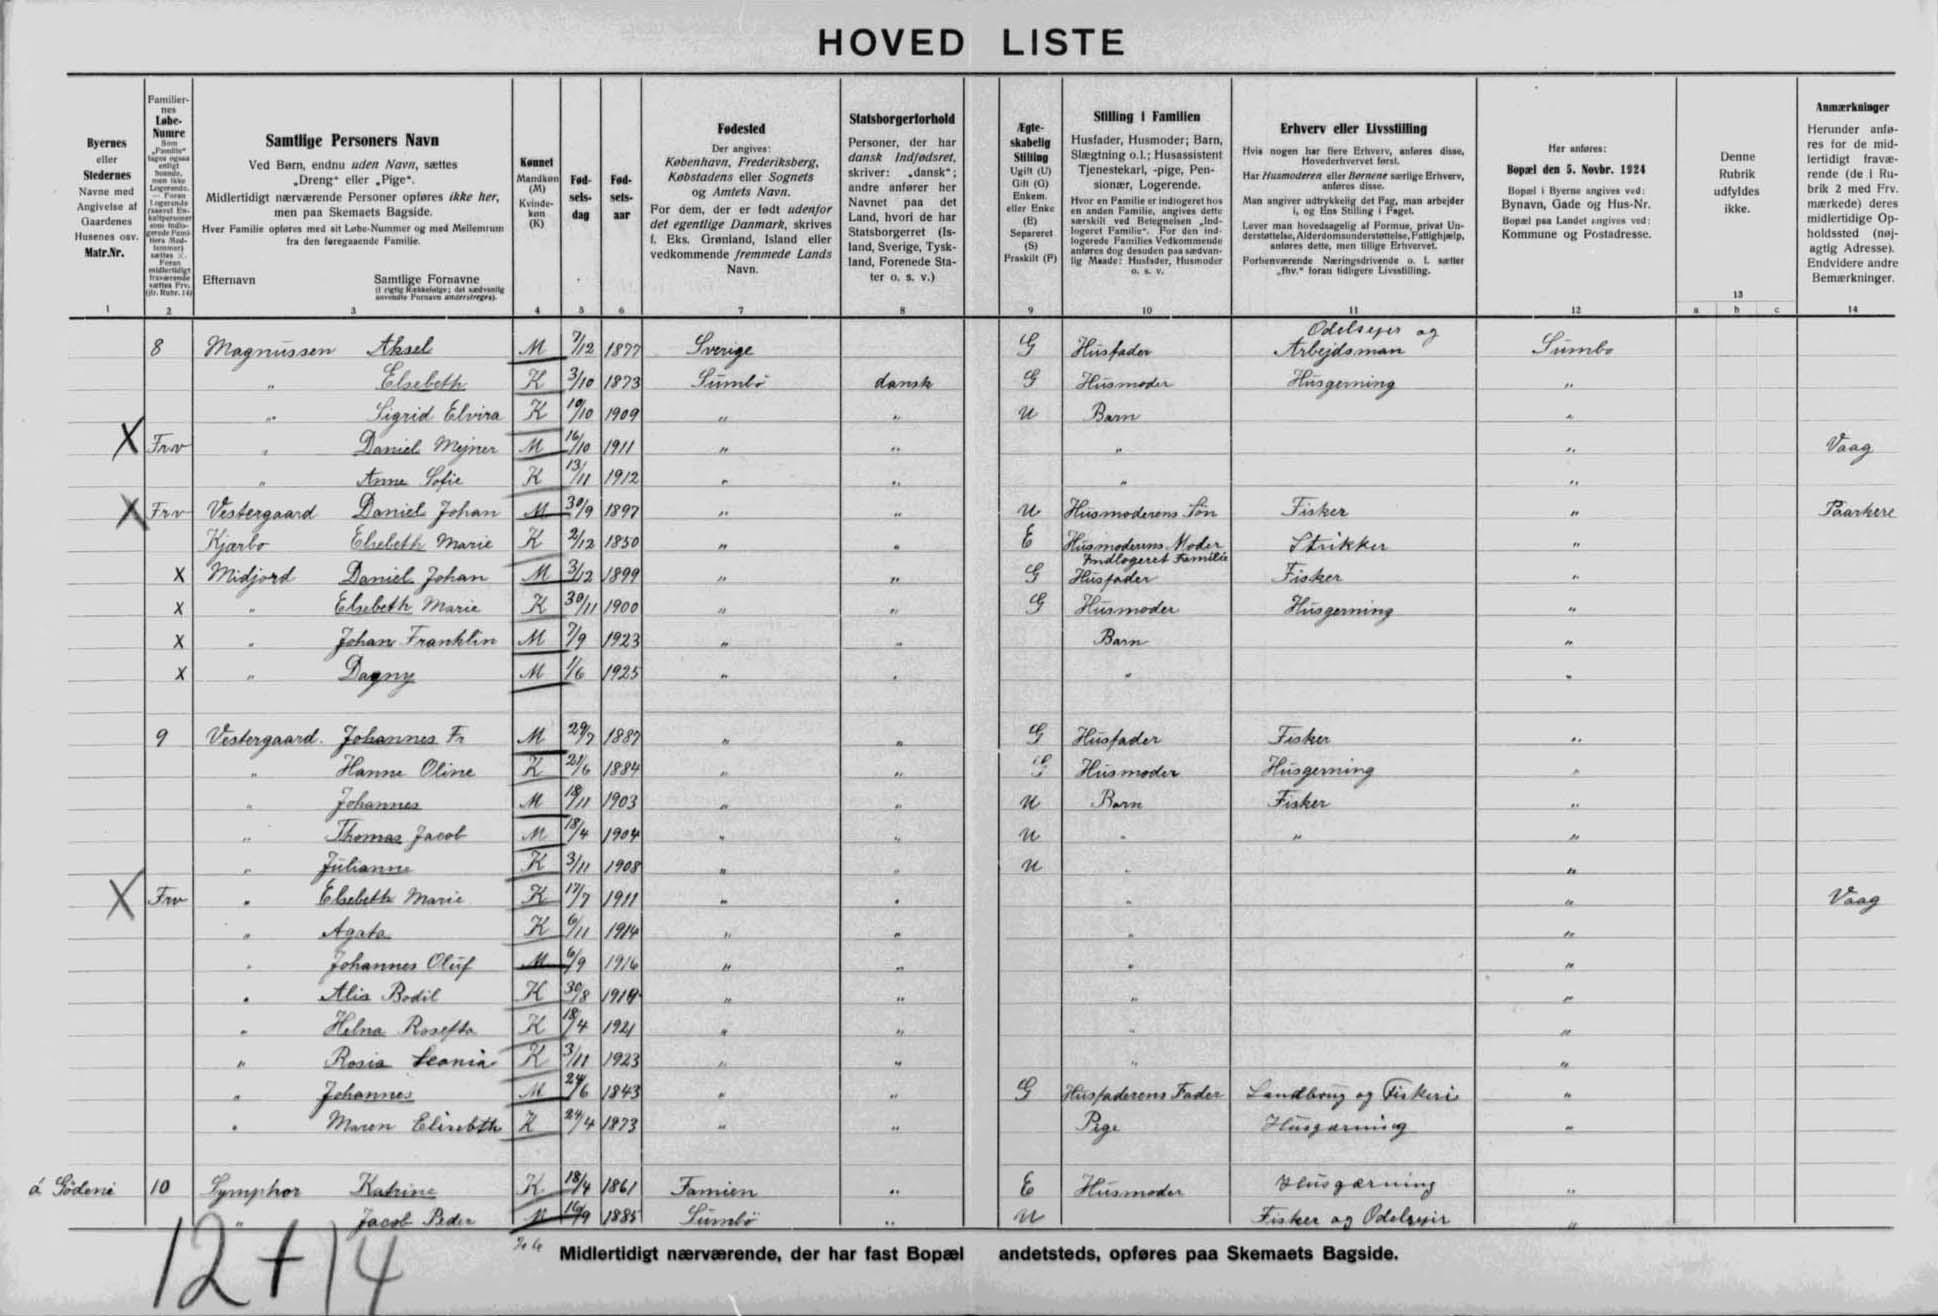 HOVED LISTE
Byernes eller Stedernes Navne med Angivelse af Gaardenes Husenes osv. Matr.Nr.
Familiernes Løbe-Numre
Samtlige Personers Navn
Ved Børn, endnu uden Navn, sættes „Dreng“ eller „Pige“.
Midlertidigt nærværende Personer opføres ikke her, men paa Skemaets Bagside.
Hver Familie opføres med sit Løbe-Nummer og med Mellemrum fra den føregaaende Familie.
Efternavn Samtlige Fornavne
(i rigtig Rækkefølge; det sædvanlig anvendte Fornavn understreges).
Kønnet Mandkøn (M) Kvindekøn (K)
Fødselsdag
Fødselsaar
Fødested
Der angives: København, Frederiksberg, Købstadens eller Sognets og Amtets Navn.
For dem, der er født udenfor det egentlige Danmark, skrives f. Eks. Grønland, Island eller vedkommende fremmede Lands Navn.
Statsborgerforhold
Personer, der har dansk Indfødsret, skriver: „dansk“; andre anfører her Navnet paa det Land, hvori de har Statsborgerret (Island, Sverige, Tyskland, Forenede Stater o. s. v.)
Ægteskabelig Stilling Ugift (U) Gift (G) Enkem. eller Enke (E) Separeret (S) Fraskilt (F)
Stilling i Familien
Husfader, Husmoder; Barn, Slægtning o.l.; Husassistent Tjenestekarl, -pige, Pensionær, Logerende.
Hvor en Familie er indlogeret hos en anden Familie, angives dette særskilt ved Betegnelsen „Indlogeret Familie“. For den indlogerede Families Vedkommende anføres dog desuden paa sædvanlig Maade: Husfader, Husmoder o. s. v.
Erhverv eller Livsstilling
Hvis nogen har flere Erhverv, anføres disse, Hovederhvervet først.
Har Husmoderen eller Børnene særlige Erhverv, anføres disse.
Man angiver udtrykkelig det Fag, man arbejder i, og Ens Stilling i Faget.
Lever man hovedsagelig af Formue, privat Understøttelse, Alderdomsunderstøttelse, Fattighjælp, anføres dette, men tillige Erhvervet.
Forhenværende Næringsdrivende o. l. sætter „fhv.“ foran tidligere Livsstilling.
Her anføres:
Bopæl den 5. Novbr. 1924
Bopæl i Byerne angives ved: Bynavn, Gade og Hus-Nr.
Bopæl paa Landet angives ved: Kommune og Postadresse.
Denne Rubrik udfyldes ikke.
Anmærkninger
Herunder anføres for de midlertidigt fraværende (de i Rubrik 2 med Frv. mærkede) deres midlertidige Opholdssted (nøjagtig Adresse).
Endvidere andre Bemærkninger.
1 2 3 4 5 6 7 8 9 10 11 12 13 a b c 14
8 Magnussen Aksel M 7/12 1877 Sverige G Husfader Odelsejer og Arbejdsman Sumbo
" Elsebeth K 3/10 1873 Sumbö dansk G Husmoder Husgerning "
" Sigrid Elvira K 10/10 1909 " " U Barn "
X Frv " Daniel Mejner M 16/10 1911 " " " " Vaag
" Anne Sofie K 13/11 1912 " " " "
X Frv Vestergaard Daniel Johan M 30/9 1897 " " U Husmoderens Søn Fisker " Paarkere
Kjærbo Elsebeth Marie K 2/12 1850 " " E Husmoderens Moder Strikker "
Indlogeret Familie
X Midjord Daniel Johan M 3/12 1899 " " G Husfader Fisker "
X " Elsebeth Marie K 30/11 1900 " " G Husmoder Husgerning "
X " Johan Franklin M 7/9 1923 " " Barn "
X " Dagny M 1/6 1925 " " " "
9 Vestergaard. Johannes Fr M 29/7 1887 " " G Husfader Fisker "
" Hanne Oline K 21/6 1884 " " G Husmoder Husgerning "
" Johannes M 18/11 1903 " " U Barn Fisker "
" Thomas Jacob M 18/4 1904 " " U " " "
" Julianne K 3/11 1908 " " U " "
X Frv " Elsebeth Marie K 17/7 1911 " " " " Vaag
" Agata K 6/11 1914 " " " "
" Johannes Oluf M 6/9 1916 " " " "
" Alis Bodil K 30/8 1919 " " " "
" Helna Rosefta K 18/4 1921 " " " "
" Rosia Leonia K 3/11 1923 " " " "
" Johannes M 24/6 1843 " " G Husfaderens Fader Landbrug og Fiskeri "
" Maren Elisebth K 24/4 1873 " " Pige Husgærning "
á Gödeni 10 Symphor Katrine K 18/4 1861 Famien " E Husmoder Husgærning "
" Jacob Peder M 16/9 1885 Sumbö " U Fisker og Odelsejer "
Midlertidigt nærværende, der har fast Bopæl andetsteds, opføres paa Skemaets Bagside.
12+14